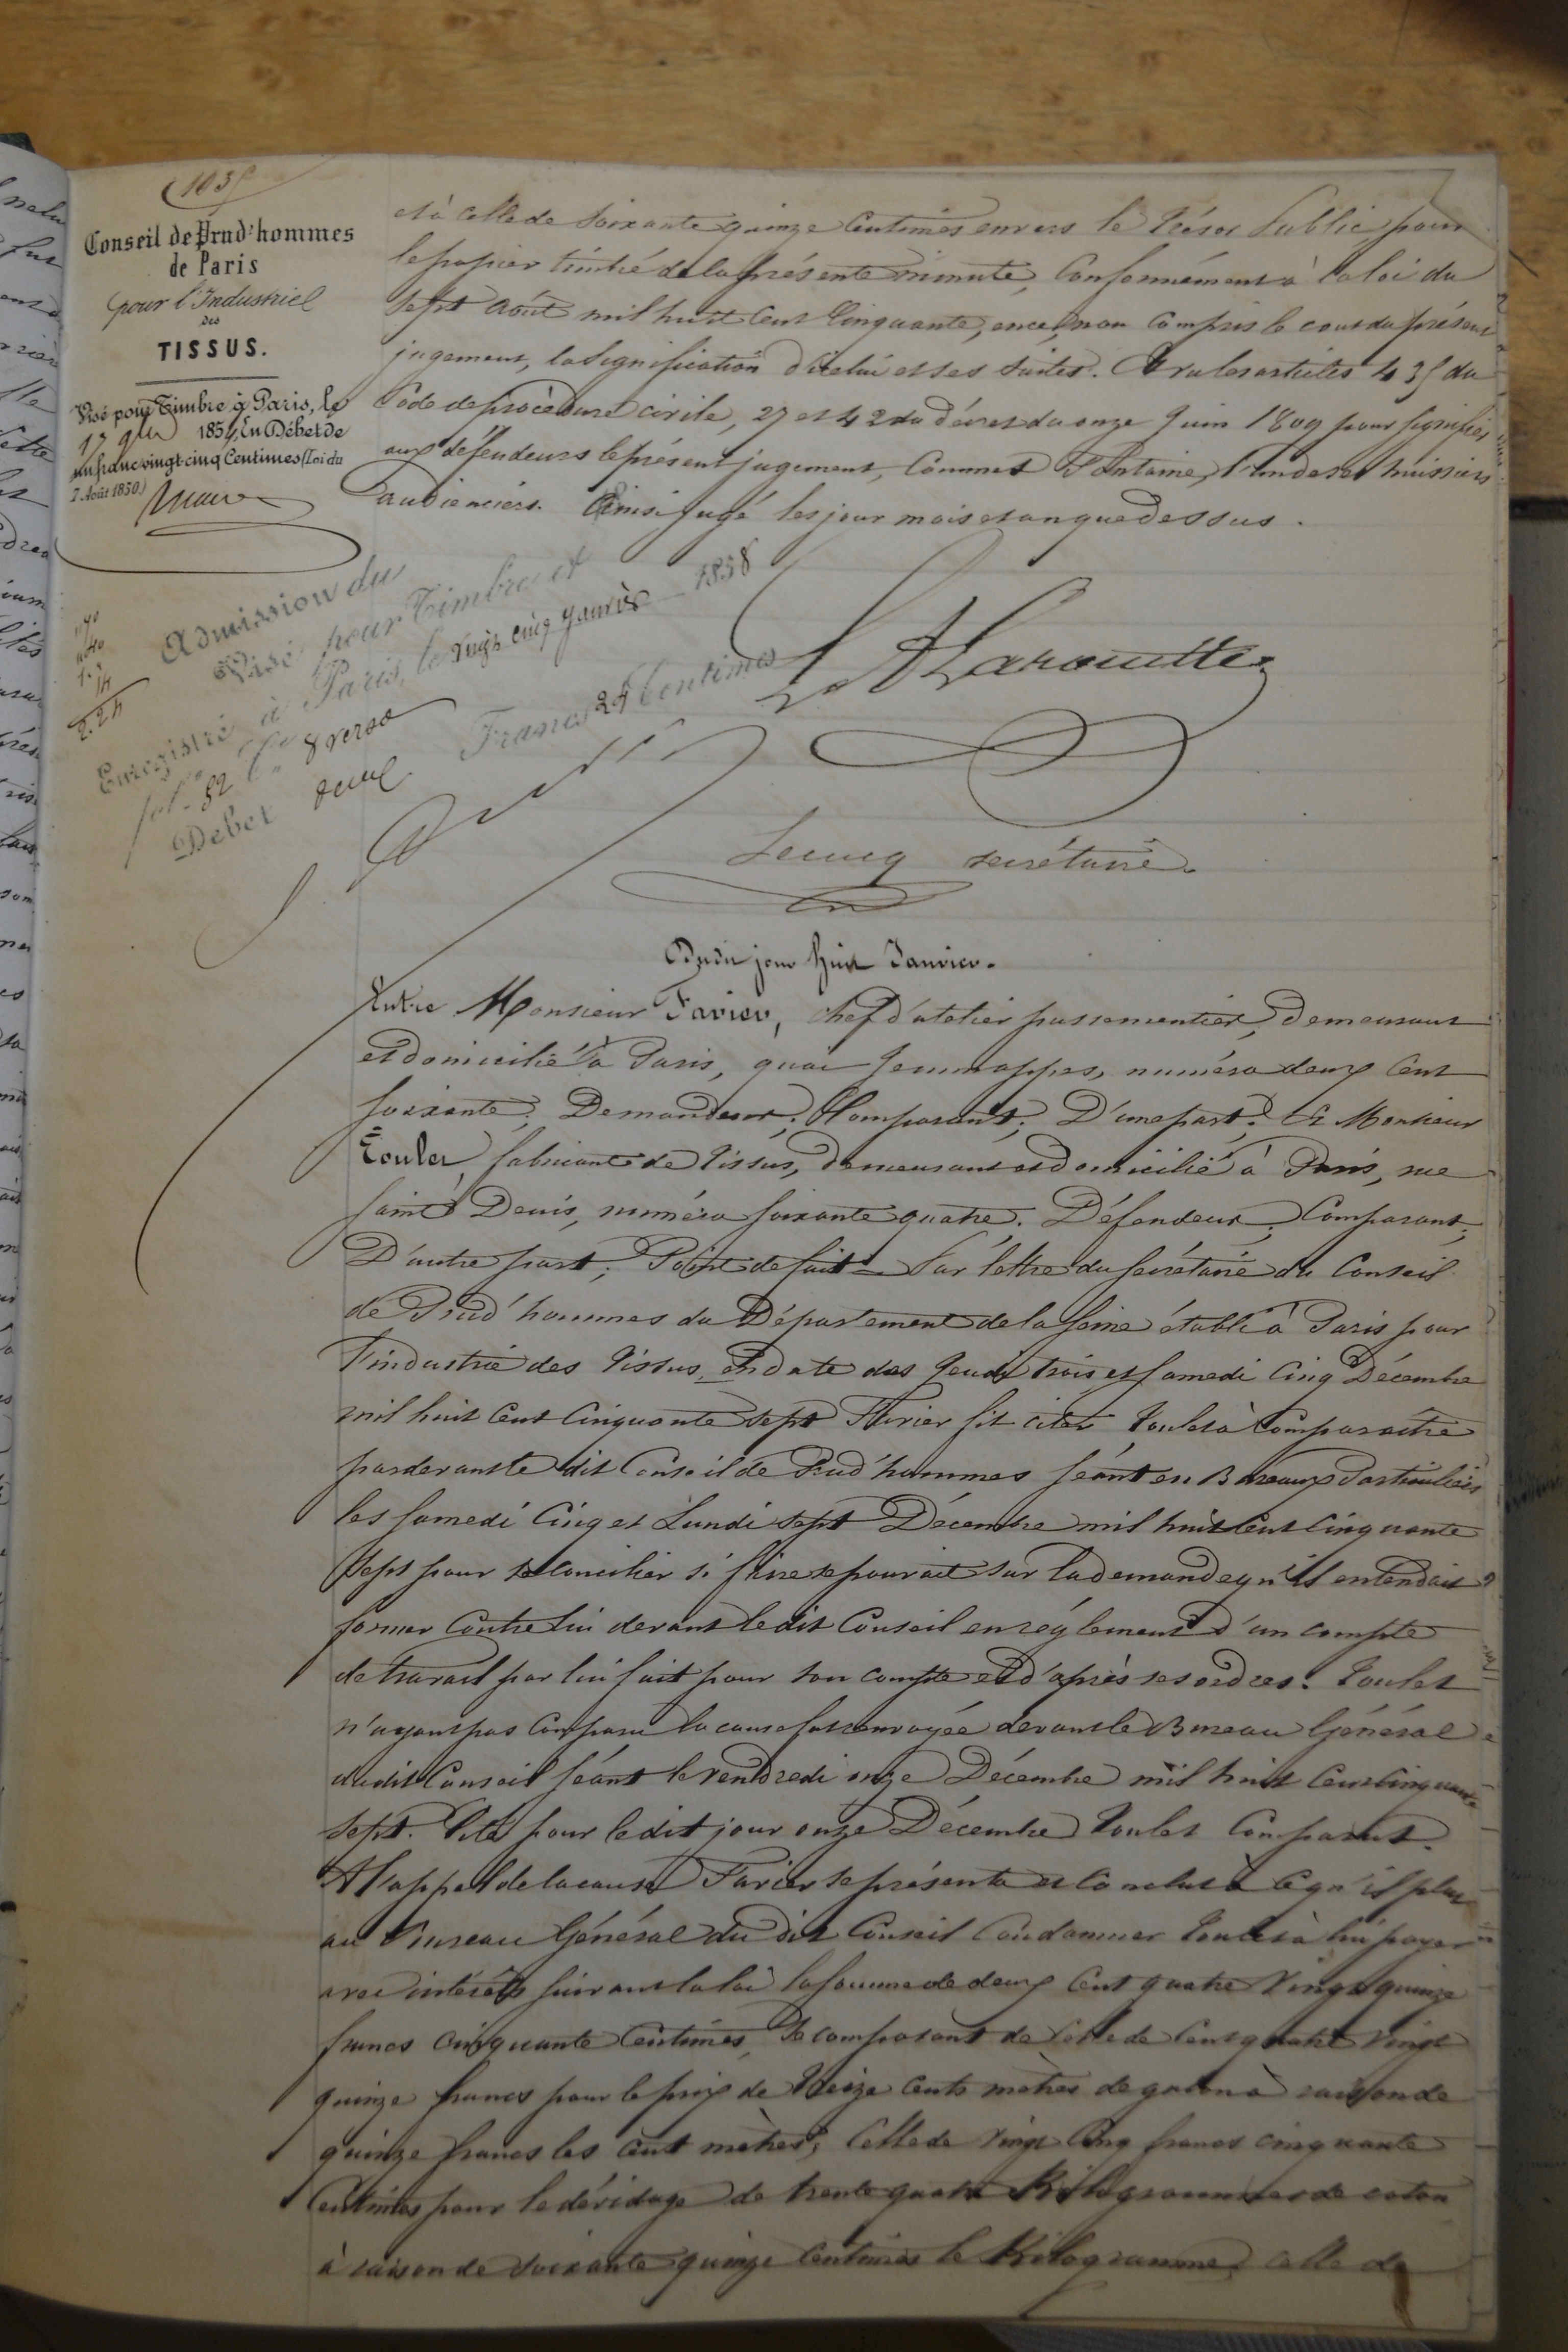 Conseil de Prud'hommes
de Paris
pour l'Industriel
des
TISSUS.
Visé pour Timbre à Paris, le
1857, En Débet de
un franc vingt cinq Centimes (Loi du
7 Août 1850)
Admission du
Visé pour Timbre et
Enregistré à Paris, le vingt cinq Janvier 1858
fol. 82 8 verso
Debet deux Francs 24 Centimes
et à celle de soixante quinze Centimes envers le Trésor Public pour
le papier timbré de la présente minute, conformément à la loi du
sept août mil huit cent cinquante, ence, non compris le cout du présent
jugement, la signification d'icelui et ses suites. Et vu les articles 435 du
Code de procédure civile, 27 et 42 du décret du onze Juin 1809 pour signifier
aux défendeurs le présent jugement, Commet l'un de ses huissiers
audienciers. Ainsi jugé les jour mois et an que dessus.
Lecucq secrétaire.
Dudit jour huit Janvier.
Entre Monsieur Favier, chef d'atelier passementier, demeurant
et domicilié à Paris, quai Jemmappes, numéro deux cent
soixante; Demandeur; Comparant; D'une part; Et Monsieur
Toulet fabricant de tissus, demeurant et domicilié à Paris, rue
Saint Denis, numéro soixante quatre. Défendeur; Comparant;
D'autre part; Point de fait = Sur lettre du secrétaire du Conseil
de Prud'hommes du Département de la Seine établi à Paris pour
l'industrie des Tissus, en date des Jeudi trois et Samedi cinq Décembre
mil huit cent cinquante sept Favier fit citer Toulet à comparaître
pardevant le dit Conseil de Prud'hommes séant en Bureaux Particuliers
les samedi cinq et Lundi sept Décembre mil huit cent cinquante
sept pour se concilier si faire se pouvait sur la demande qu'il entendait
former contre lui devant le dit Conseil en règlement d'un compte
de travail par lui fait pour son compte et d'après ses ordres. Toulet
n'ayant pas comparu la cause fut renvoyée devant le Bureau Général
du dit Conseil séant le vendredi onze Décembre mil huit cent cinquante
sept. Cité pour le dit jour onze Décembre Toulet comparut.
A l'appel de la cause Favier se présenta et conclut à ce qu'il plut
au Bureau Général du dit Conseil condamner Toulet à lui payer
avec intérêts suivant la loi la somme de deux cent quatre vingt quinze
francs cinquante centimes, se composant de celle de cent quatre vingt
quinze francs pour le prix de treize cents mètres de galon à raison de
quinze francs les cent mètres; celle de vingt cinq francs cinquante
centimes pour le dévidage de trente quatre Kilogrammes de coton
à raison de soixante quinze centimes le Kilogramme; celle de